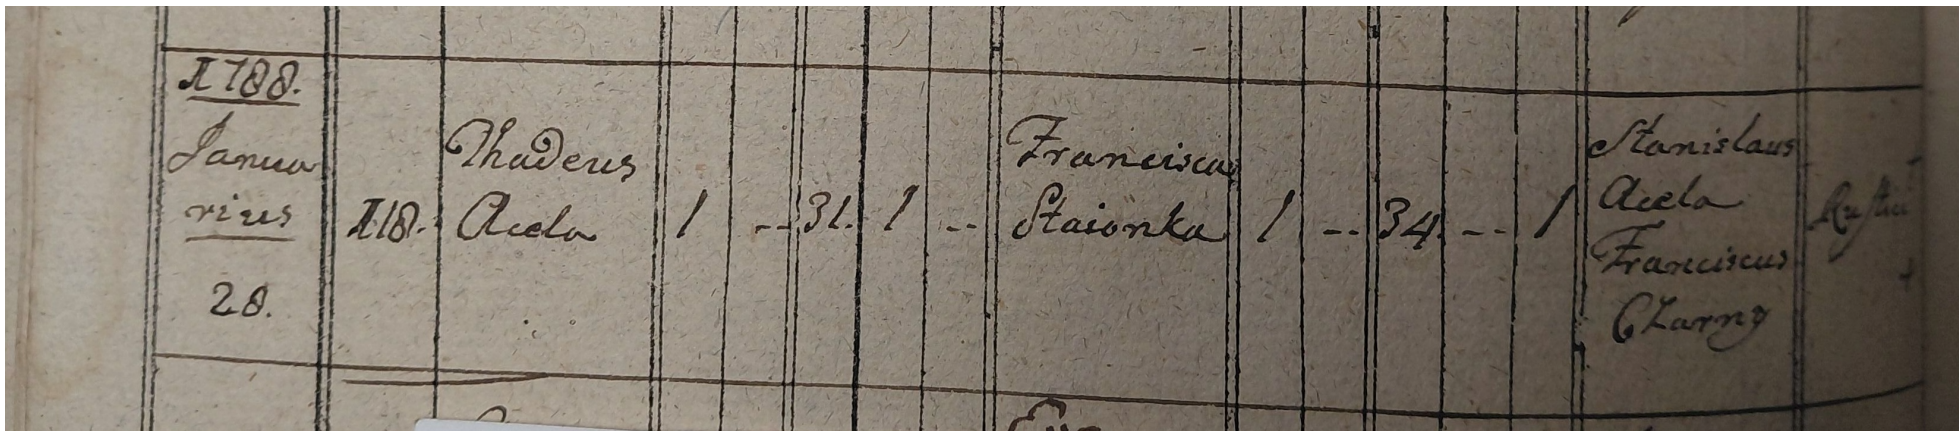 1788.
Janua
rius
28.
118.
Thadeus
Acela
1 -- 31. 1 --
Francisca
Staionka
1 -- 34. -- 1
Stanislaus
Acela
Franciscus
Czarny